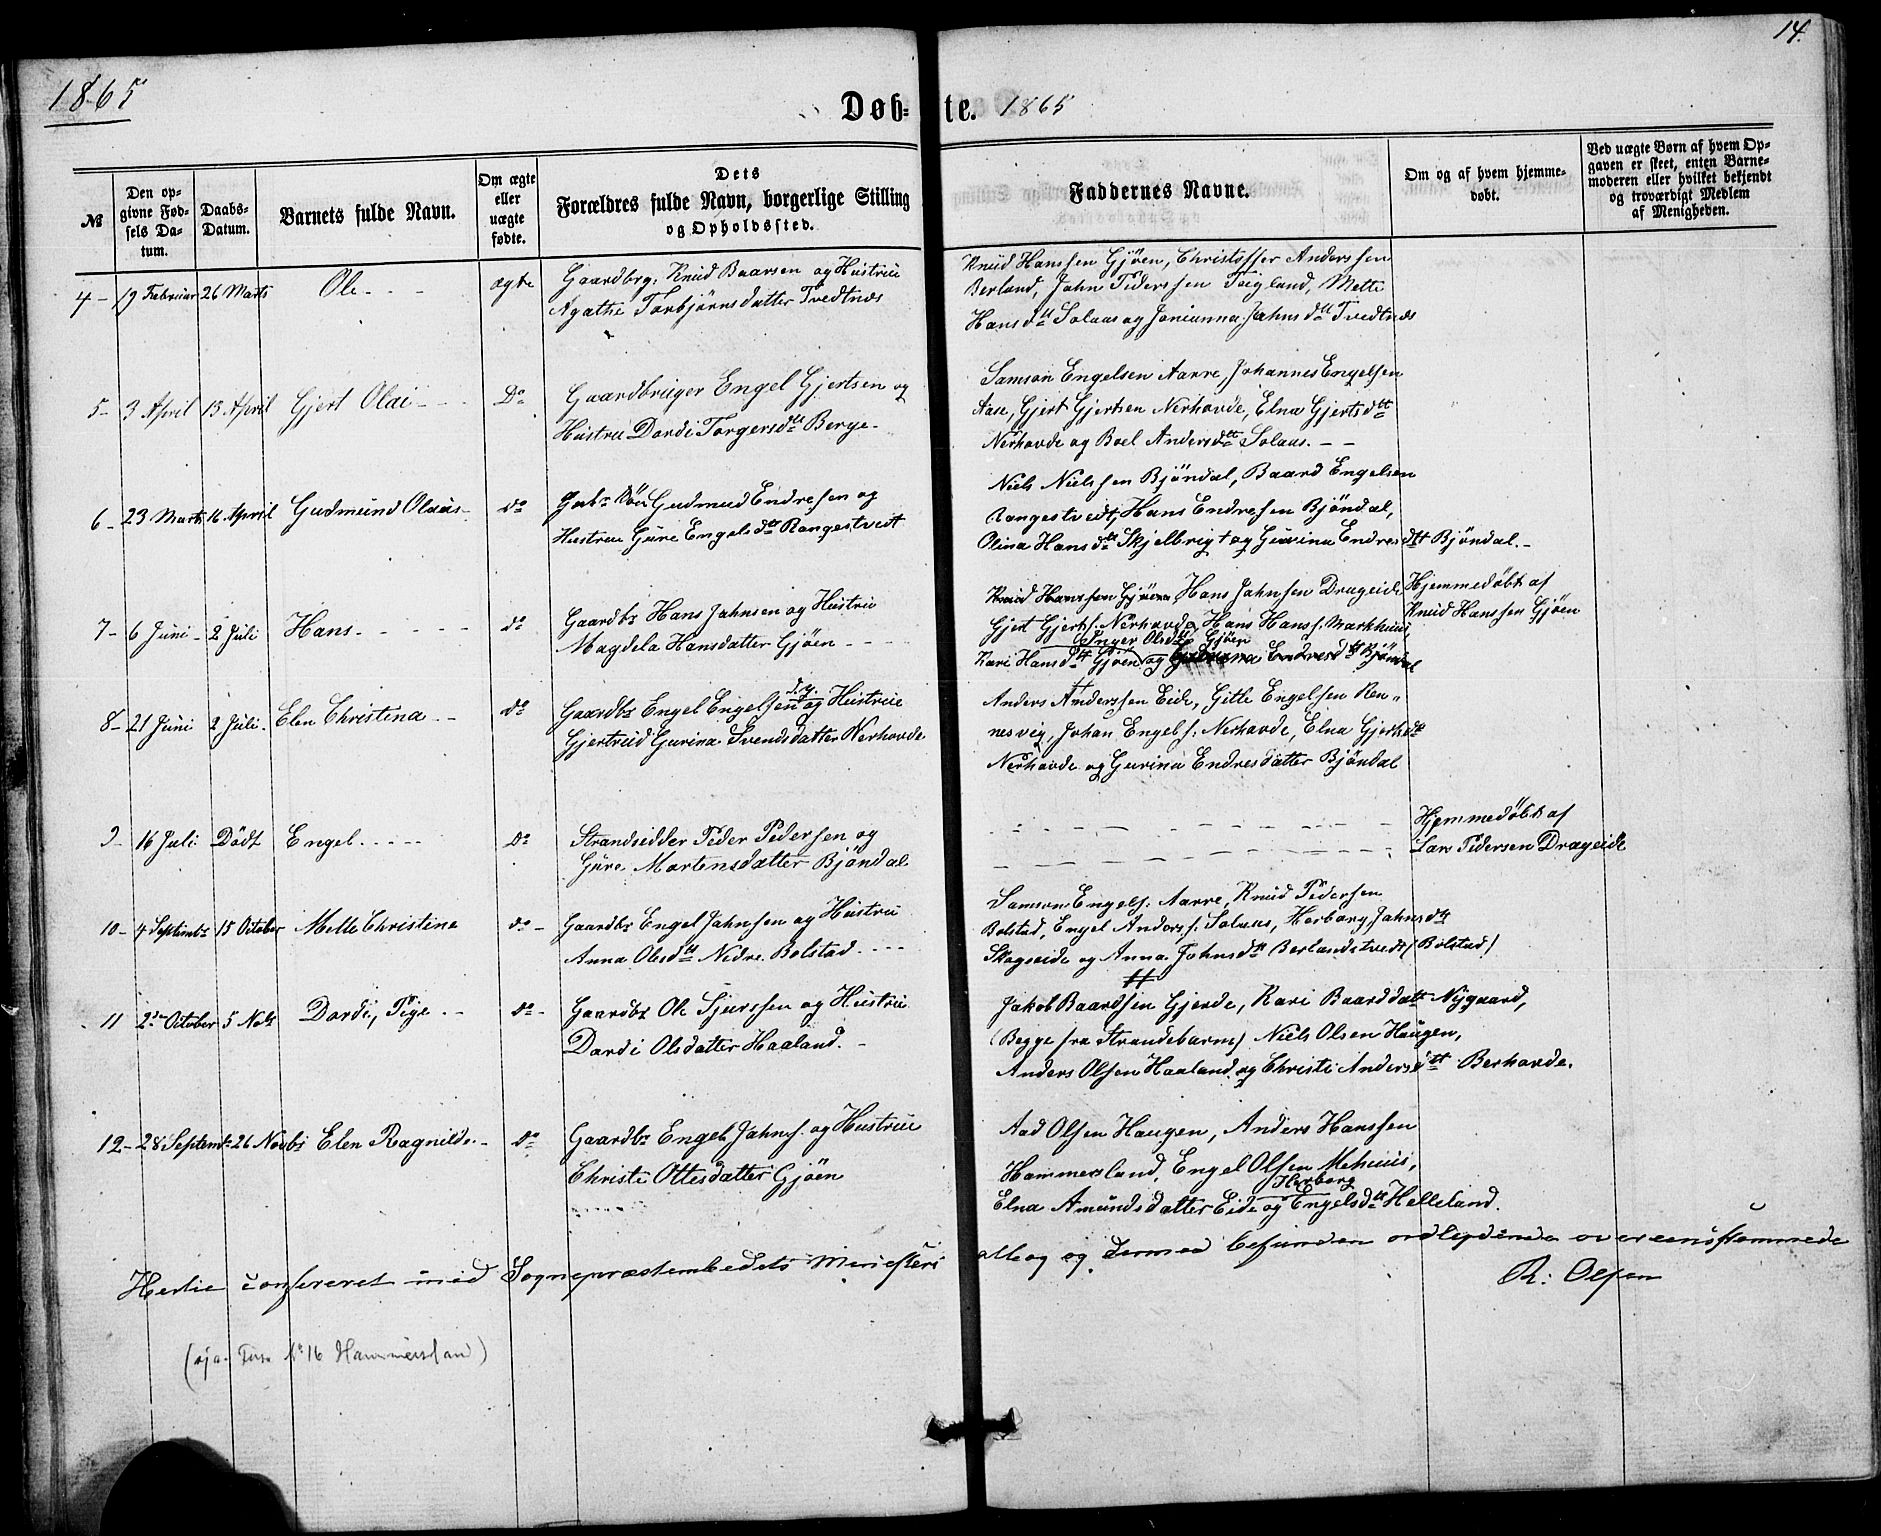 14.
1865
Døb-te. 1865
№
Den op-
givne Fød-
sels Da-
tum.
Daabs-
Datum.
Barnets fulde Navn.
Om ægte
eller
uægte
fødte.
Dets
Forældres fulde Navn, borgerlige Stilling
og Opholdssted.
Faddernes Navne.
Om og af hvem hjemme-
døbt.
Ved uægte Børn af hvem Op-
gaven er skeet, enten Barne-
moderen eller hvilket bekjendt
og troværdigt Medlem
af Menigheden.
4 - 19 Februar 26 Marts Ole - - - ægte
Gaardbrg: Knud Baarsen og Hustrue
Agathe Torbjörnsdatter Tvedtnæs
Knud Hanssen Gjöen, Christoffer Anderssen
Berland, John Pederssen Teigland, Mette
Hansdtt Solaas og Jonianna Johnsdtt Tvedtnæs
5 - 3 April 13 April Gjert Olai - - - Do
Gaardbruger Engel Gjertsen og
Hustru Dordi Torgersdtr Berge -
Samson Engelsen Aarre, Johannes Engelsen
Aase, Gjert Gjertsen Nerhovde, Elna Gjertsdtt
Nerhovde og Boel Andersdtt Solaas. - -
6 - 23 Marts 16 April Gudmund Olaus - do
Gudmud Endresen og
Hustrue Gure Engelsdtr Rangestvedt
Niels Nielssen Bjöndal, Baard Engelsen
Rangestvedt, Hans Endresen Bjöndal,
Olina Hansdtr Skjelbrigt og Gurina Endresdtt Bjöndal. -
7 - 6 Juni - 2 Juli Hans - - - - - do
Gaardbr Hans Johnsen og Hustrue
Magdela Hansdatter Gjöen - - -
Knud Hanssen Gjöen, Hans Johnsen Drageide
Gjert Gjerts. Nerhovde, Hans Hanss. Markhuus
Inger Olsdtr Gjöen
Kari Hansdtt Gjöen og Gurina Endresdtt Bjöndal
Hjemmedöbt af
Knud Hanssen Gjöen
8 - 21 Juni 2 Juli - Elen Christena - - do
d.y.
Gaardbr Engel Engelsen og Hustrue
Gjertrud Gurina Svendsdatter Nerhovde
Anders Anderssen Eide, Gitle Engelsen Ren-
nesvig, Johan Engels. Nerhovde, Elna Gjertsdtt
Nerhovde og Gurina Endresdatter Bjöndal
9 - 16 Juli Dödt Engel - - - - - Do
Strandsidder Peder Pedersen og
Gure Martensdatter Bjöndal
Hjemmedöbt af
Lars Pedersen Drageide
10 - 4 Septembr 15 October Mette Christine do -
Gaardbr Engel Johnsen og Hustrue
Anna Olsdtt Nedre Bolstad - - - -
Samson Engels. Aarre, Knud Pedersen
Bolstad, Engel Anders. Solaas, Herborg Johnsdtt
Skogseide og Anna Johnsdtt Berlandstvedt (Bolstad)
11 2den October 5 Nobr Dordi, Pige - - do -
Gaardbr Ole Sjurssen og Hustrue
Dordi Olsdatter Haaland. -
Jakob Baardsen Gjerde, Kari Baarddatt Nygaard,
(Begge fra Strandebarm) Niels Olsen Haugen,
Anders Olsen Haaland og Christi Andersdtt Berhovde.
12 - 28 Septembr 26 Novbr Elen Ragnilde - do
Gaardbr Engel Johns. og Hustrue
Christi Ottesdatter Gjöen
Aad Olsen Haugen, Anders Hanssen
Hammersland, Engel Olsen Mehuus,
Herborg
Elna Amundsdatter Eide og Engelsdtr Helleland.
Hertil confereret med Sognepræstembedets Ministeri albog og dermed befunden ordlydende overeensstemmede
R: Olsen
No 16 Hammersland)